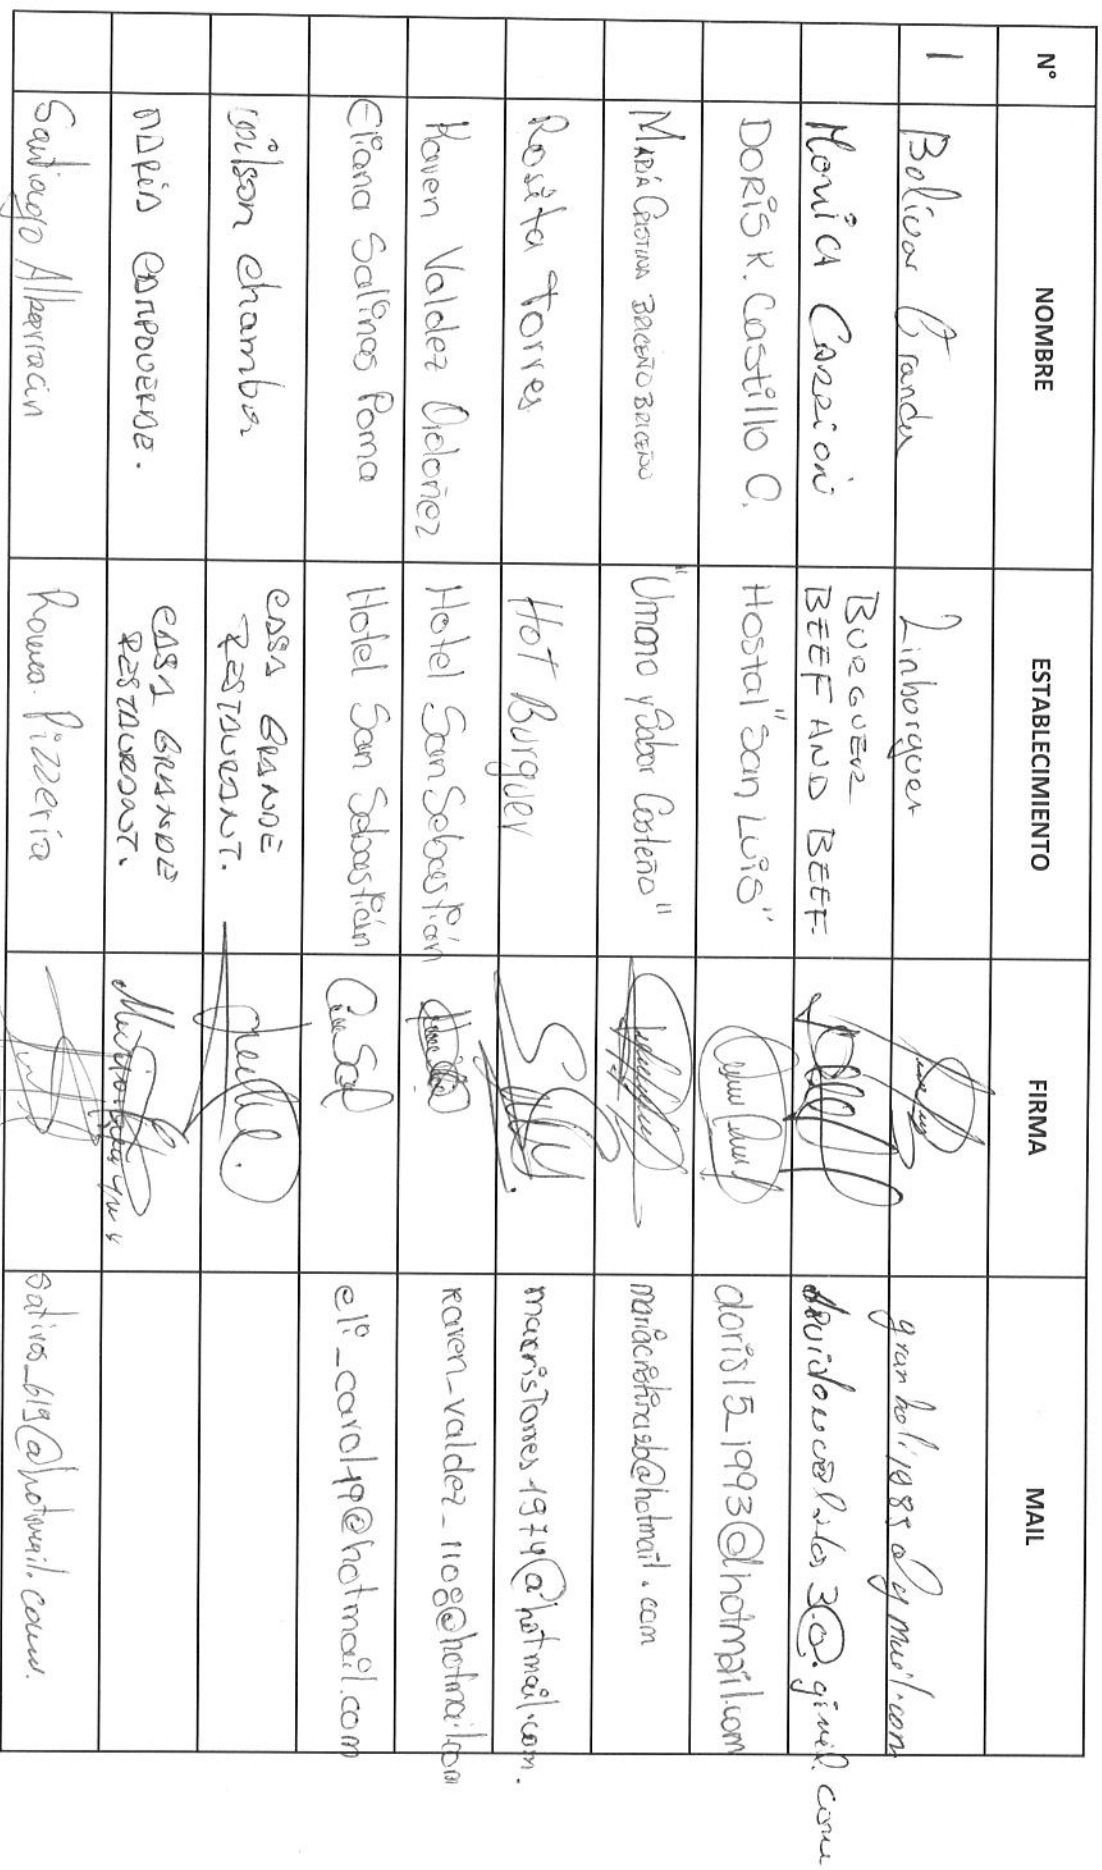 N° NOMBRE ESTABLECIMIENTO FIRMA MAIL
1 Bolivar Granda Linborguer granboli1989@gmail.com
Monica Carrion BURGUER BEEF AND BEEF
DORIS K. Castillo C. Hostal "San Luis" doris15_1993@hotmail.com
MARIA CRISTINA BRICEÑO BRICEÑO "Umano y Sabor Costeño" mariacristinazb@hotmail.com
Rosita Torres Hot Burguer maxrisTorres-1974@hotmail.com.
Karen Valdez Ordoñez Hotel San Sebastián karen-valdez_1108@hotmail.com
Eliana Salinas Poma Hotel San Sebastián eli_carol19@hotmail.com
wilson chamba CASA GRANDE RESTAURANT.
MARIA CAMPOVERDE. CASA GRANDE RESTAURANT.
Santiago Albarracin Pizzeria sativos_619@hotmail.com.